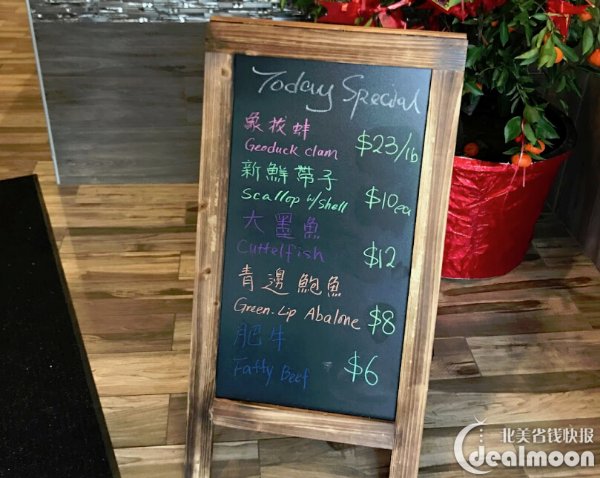 Today Special
象拔蚌
Geoduck clam $23/lb
新鮮帶子
Scallop w/shell $10ea
大墨魚
Cuttelfish $12
青邊鮑魚
Green.Lip Abalone $8
肥牛
Fatty Beef $6
北美省钱快报
dealmoon